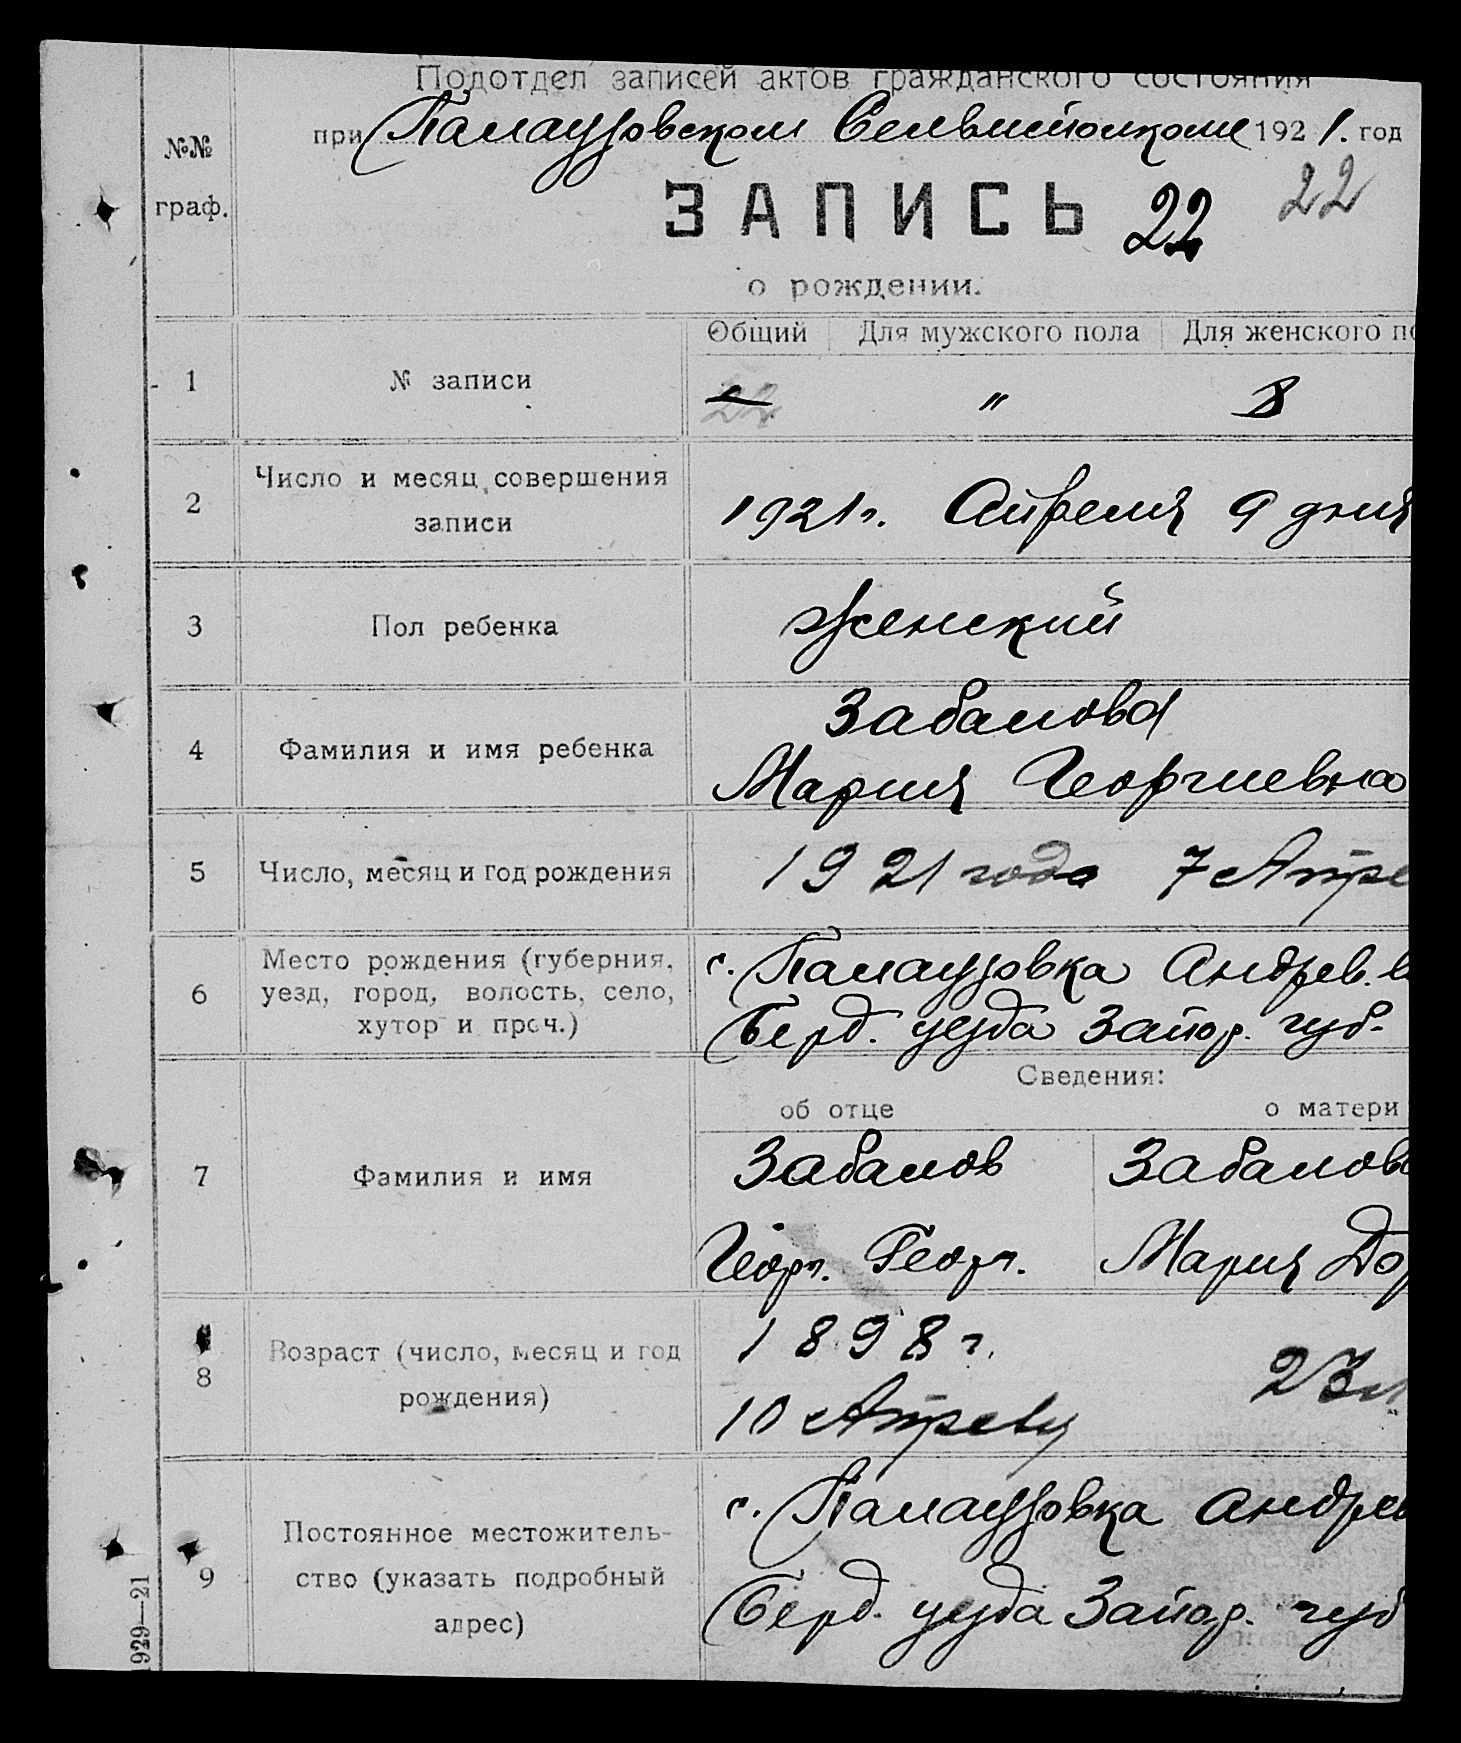 Подотдел записей актов гражданского состояния
при Палаузовском Сельисполкоме 1921. год
№№
граф.
ЗАПИСЬ 22 22
о рождении.
Общий Для мужского пола Для женского по
1 № записи 22 " 8
2 Число и месяц совершения
записи
1921 г. Апреля 9 дня
3 Пол ребенка Женский
4 Фамилия и имя ребенка
Забалова
Мария Георгиевна
5 Число, месяц и год рождения 1921 года 7 Апре
6 Место рождения (губерния,
уезд, город, волость, село,
хутор и проч.)
с. Палаузовка Андрев. в
Берд. уезда Запор. губ.
Сведения:
об отце о матери
7 Фамилия и имя
Забалов Забалова
Геор. Геор. Мария До
8 Возраст (число, месяц и год
рождения)
1898 г. 23 л
10 Апреля
9 Постоянное местожитель-
ство (указать подробный
адрес)
с. Палаузовка Андрев
Берд. уезда Запор. губ
1929—21